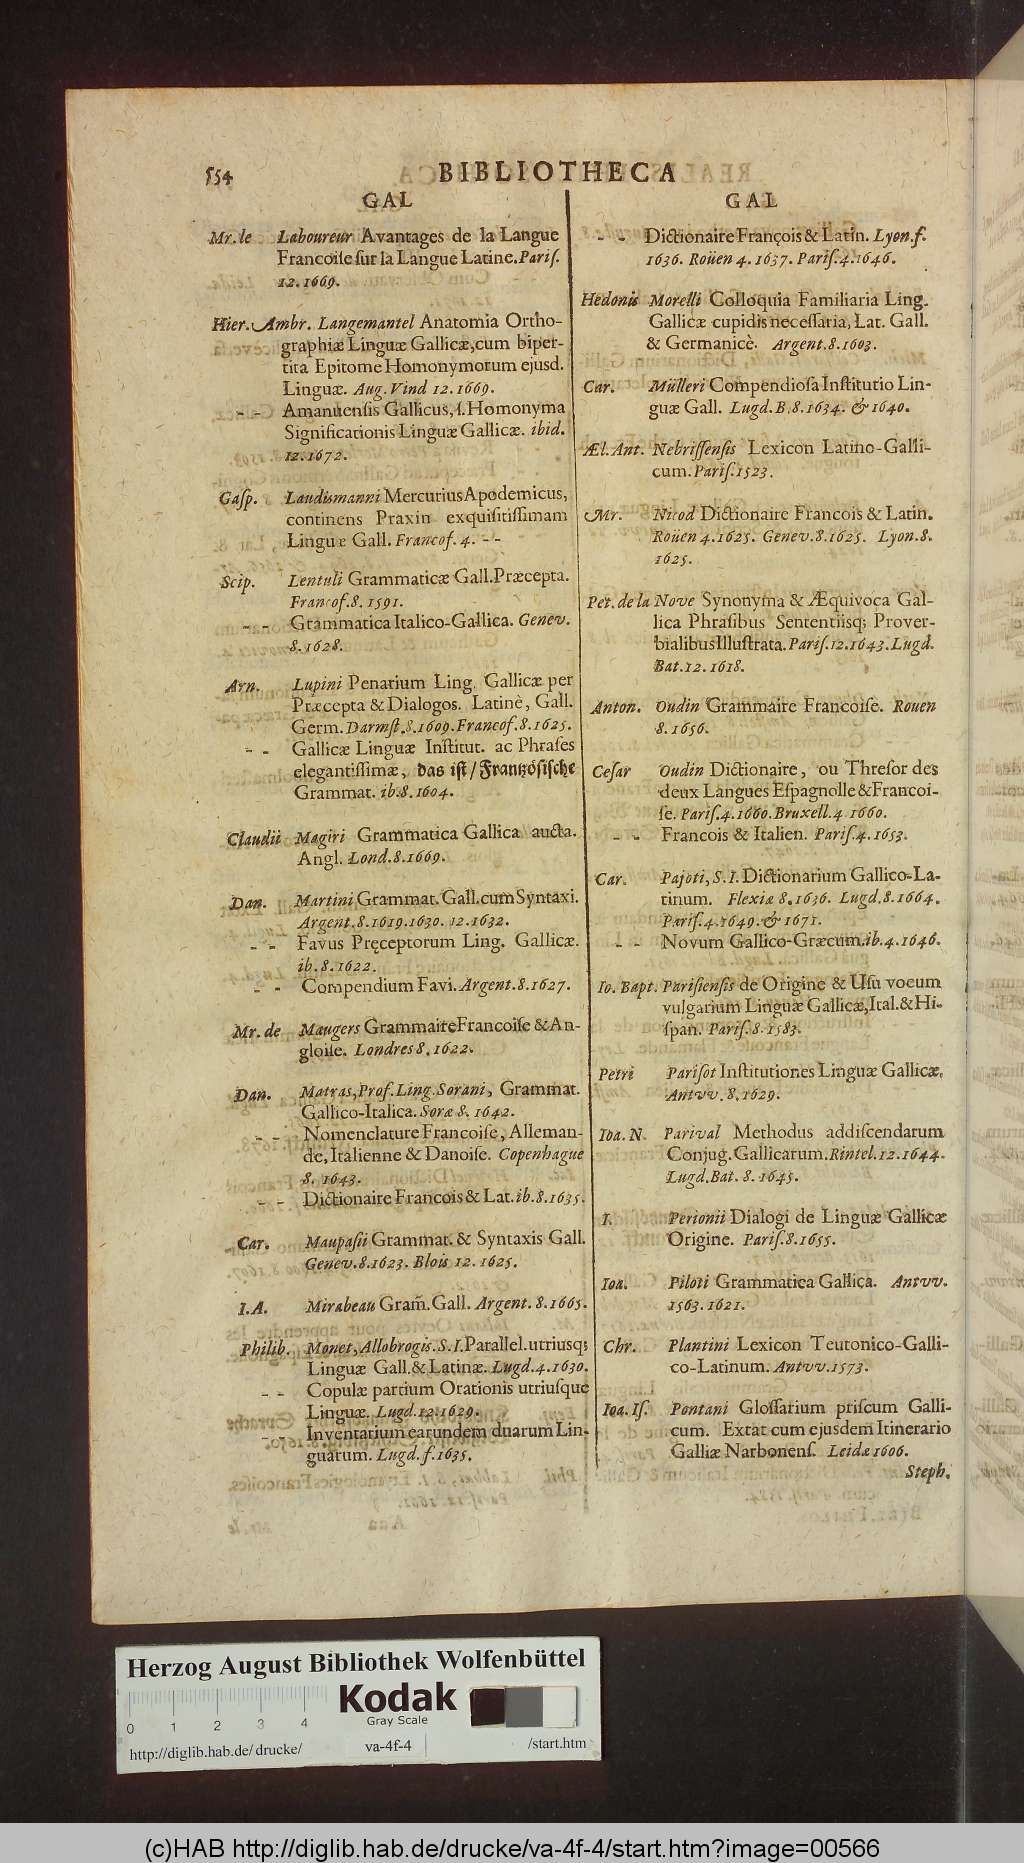 554
BIBLIOTHECA
GAL
Mr. le Laboureur Avantages de la Langue
Francoiſe ſur la Langue Latine. Pariſ.
12. 1669.
Hier. Ambr. Langemantel Anatomia Ortho-
graphiæ Linguæ Gallicæ, cum biper-
tita Epitome Homonymorum ejusd.
Linguæ. Aug. Vind 12. 1669.
- - Amanuenſis Gallicus, ſ. Homonyma
Significationis Linguæ Gallicæ. ibid.
12. 1672.
Gaſp. Laudismanni Mercurius Apodemicus,
continens Praxin exquiſitiſſimam
Linguæ Gall. Francof. 4. - -
Scip. Lentuli Grammaticæ Gall. Præcepta.
Francof. 8. 1591.
- - Grammatica Italico-Gallica. Genev.
8. 1628.
Arn. Lupini Penarium Ling. Gallicæ per
Præcepta & Dialogos. Latinè, Gall.
Germ. Darmſt. 8. 1609. Francof. 8. 1625.
- - Gallicæ Linguæ Inſtitut. ac Phraſes
elegantiſſimæ, das iſt / Frantzöſiſche
Grammat. ib. 8. 1604.
Claudii Magiri Grammatica Gallica aucta.
Angl. Lond. 8. 1669.
Dan. Martini Grammat. Gall. cum Syntaxi.
Argent. 8. 1619. 1630. 12. 1632.
- - Favus Pręceptorum Ling. Gallicæ.
ib. 8. 1622.
- - Compendium Favi. Argent. 8. 1627.
Mr. de Maugers Grammaire Francoiſe & An-
gloiſe. Londres 8. 1622.
Dan. Matras, Prof. Ling. Sorani, Grammat.
Gallico-Italica. Soræ 8. 1642.
- - Nomenclature Francoiſe, Alleman-
de, Italienne & Danoiſe. Copenhague
8. 1643.
- - Dictionaire Francois & Lat. ib. 8. 1635.
Car. Maupaſii Grammat. & Syntaxis Gall.
Genev. 8. 1623. Blois 12. 1625.
I. A. Mirabeau Gram̃. Gall. Argent. 8. 1665.
Philib. Monet, Allobrogis. S. I. Parallel. utriusq;
Linguæ Gall. & Latinæ. Lugd. 4. 1630.
- - Copulæ partium Orationis utriuſque
Linguæ. Lugd. 12. 1629.
- - Inventarium earundem duarum Lin-
guarum. Lugd. f. 1635.
GAL
- - Dictionaire François & Latin. Lyon. f.
1636. Roüen 4. 1637. Pariſ. 4. 1646.
Hedonis Morelli Colloquia Familiaria Ling.
Gallicæ cupidis neceſſaria, Lat. Gall.
& Germanicè. Argent. 8. 1603.
Car. Mülleri Compendioſa Inſtitutio Lin-
guæ Gall. Lugd. B. 8. 1634. & 1640.
Æl. Ant. Nebriſſenſis Lexicon Latino-Galli-
cum. Pariſ. 1523.
Mr. Nicod Dictionaire Francois & Latin.
Roüen 4. 1625. Genev. 8. 1625. Lyon. 8.
1625.
Pet. de la Nove Synonyma & Æquivoca Gal-
lica Phraſibus Sententiisq; Prover-
bialibus Illuſtrata. Pariſ. 12. 1643. Lugd.
Bat. 12. 1618.
Anton. Oudin Grammaire Francoiſe. Rouen
8. 1656.
Ceſar Oudin Dictionaire, ou Threſor des
deux Langues Eſpagnolle & Francoi-
ſe. Pariſ. 4. 1660. Bruxell. 4 1660.
- - Francois & Italien. Pariſ. 4. 1653.
Car. Pajoti, S. I. Dictionarium Gallico-La-
tinum. Flexiæ 8. 1636. Lugd. 8. 1664.
Pariſ. 4. 1649. & 1671.
- - Novum Gallico-Græcum. ib. 4. 1646.
Io. Bapt. Pariſienſis de Origine & Uſu vocum
vulgarium Linguæ Gallicæ, Ital. & Hi-
ſpan. Pariſ. 8. 1583.
Petri Pariſot Inſtitutiones Linguæ Gallicæ.
Antvv. 8. 1629.
Ioa. N. Parival Methodus addiſcendarum
Conjug. Gallicarum. Rintel. 12. 1644.
Lugd. Bat. 8. 1645.
I. Perionii Dialogi de Linguæ Gallicæ
Origine. Pariſ. 8. 1655.
Ioa. Piloti Grammatica Gallica. Antvv.
1563. 1621.
Chr. Plantini Lexicon Teutonico-Galli-
co-Latinum. Antvv. 1573.
Ioa. Iſ. Pontani Gloſſarium priſcum Galli-
cum. Extat cum ejusdem Itinerario
Galliæ Narbonenſ. Leidæ 1606.
Steph.
Herzog August Bibliothek Wolfenbüttel
Kodak
Gray Scale
0 1 2 3 4
http://diglib.hab.de/drucke/ va-4f-4 /start.htm
(c)HAB http://diglib.hab.de/drucke/va-4f-4/start.htm?image=00566